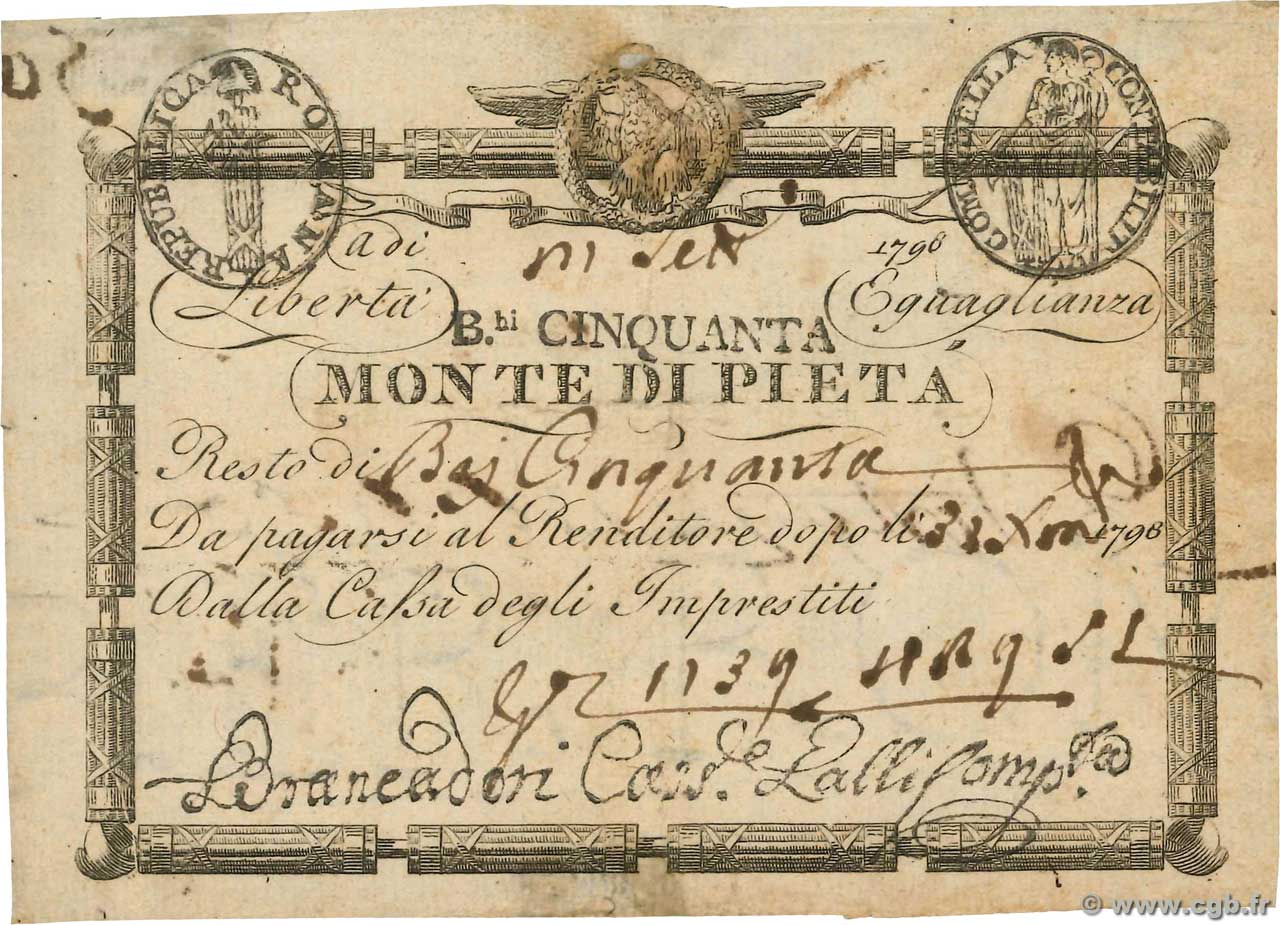 REPUBLICA ROMANA
COM. DELLA CONTABILIT
a di 1798
Libertà Eguaglianza
B.hi CINQUANTA
MONTE DI PIETÁ
Resto di Baj Cinquanta
Da pagarsi al Renditore dopo li 31 Xm 1798
Dalla Caſsa degli Imprestiti
1139
Brancadori Cass.e Lalli Comp.
© www.cgb.fr